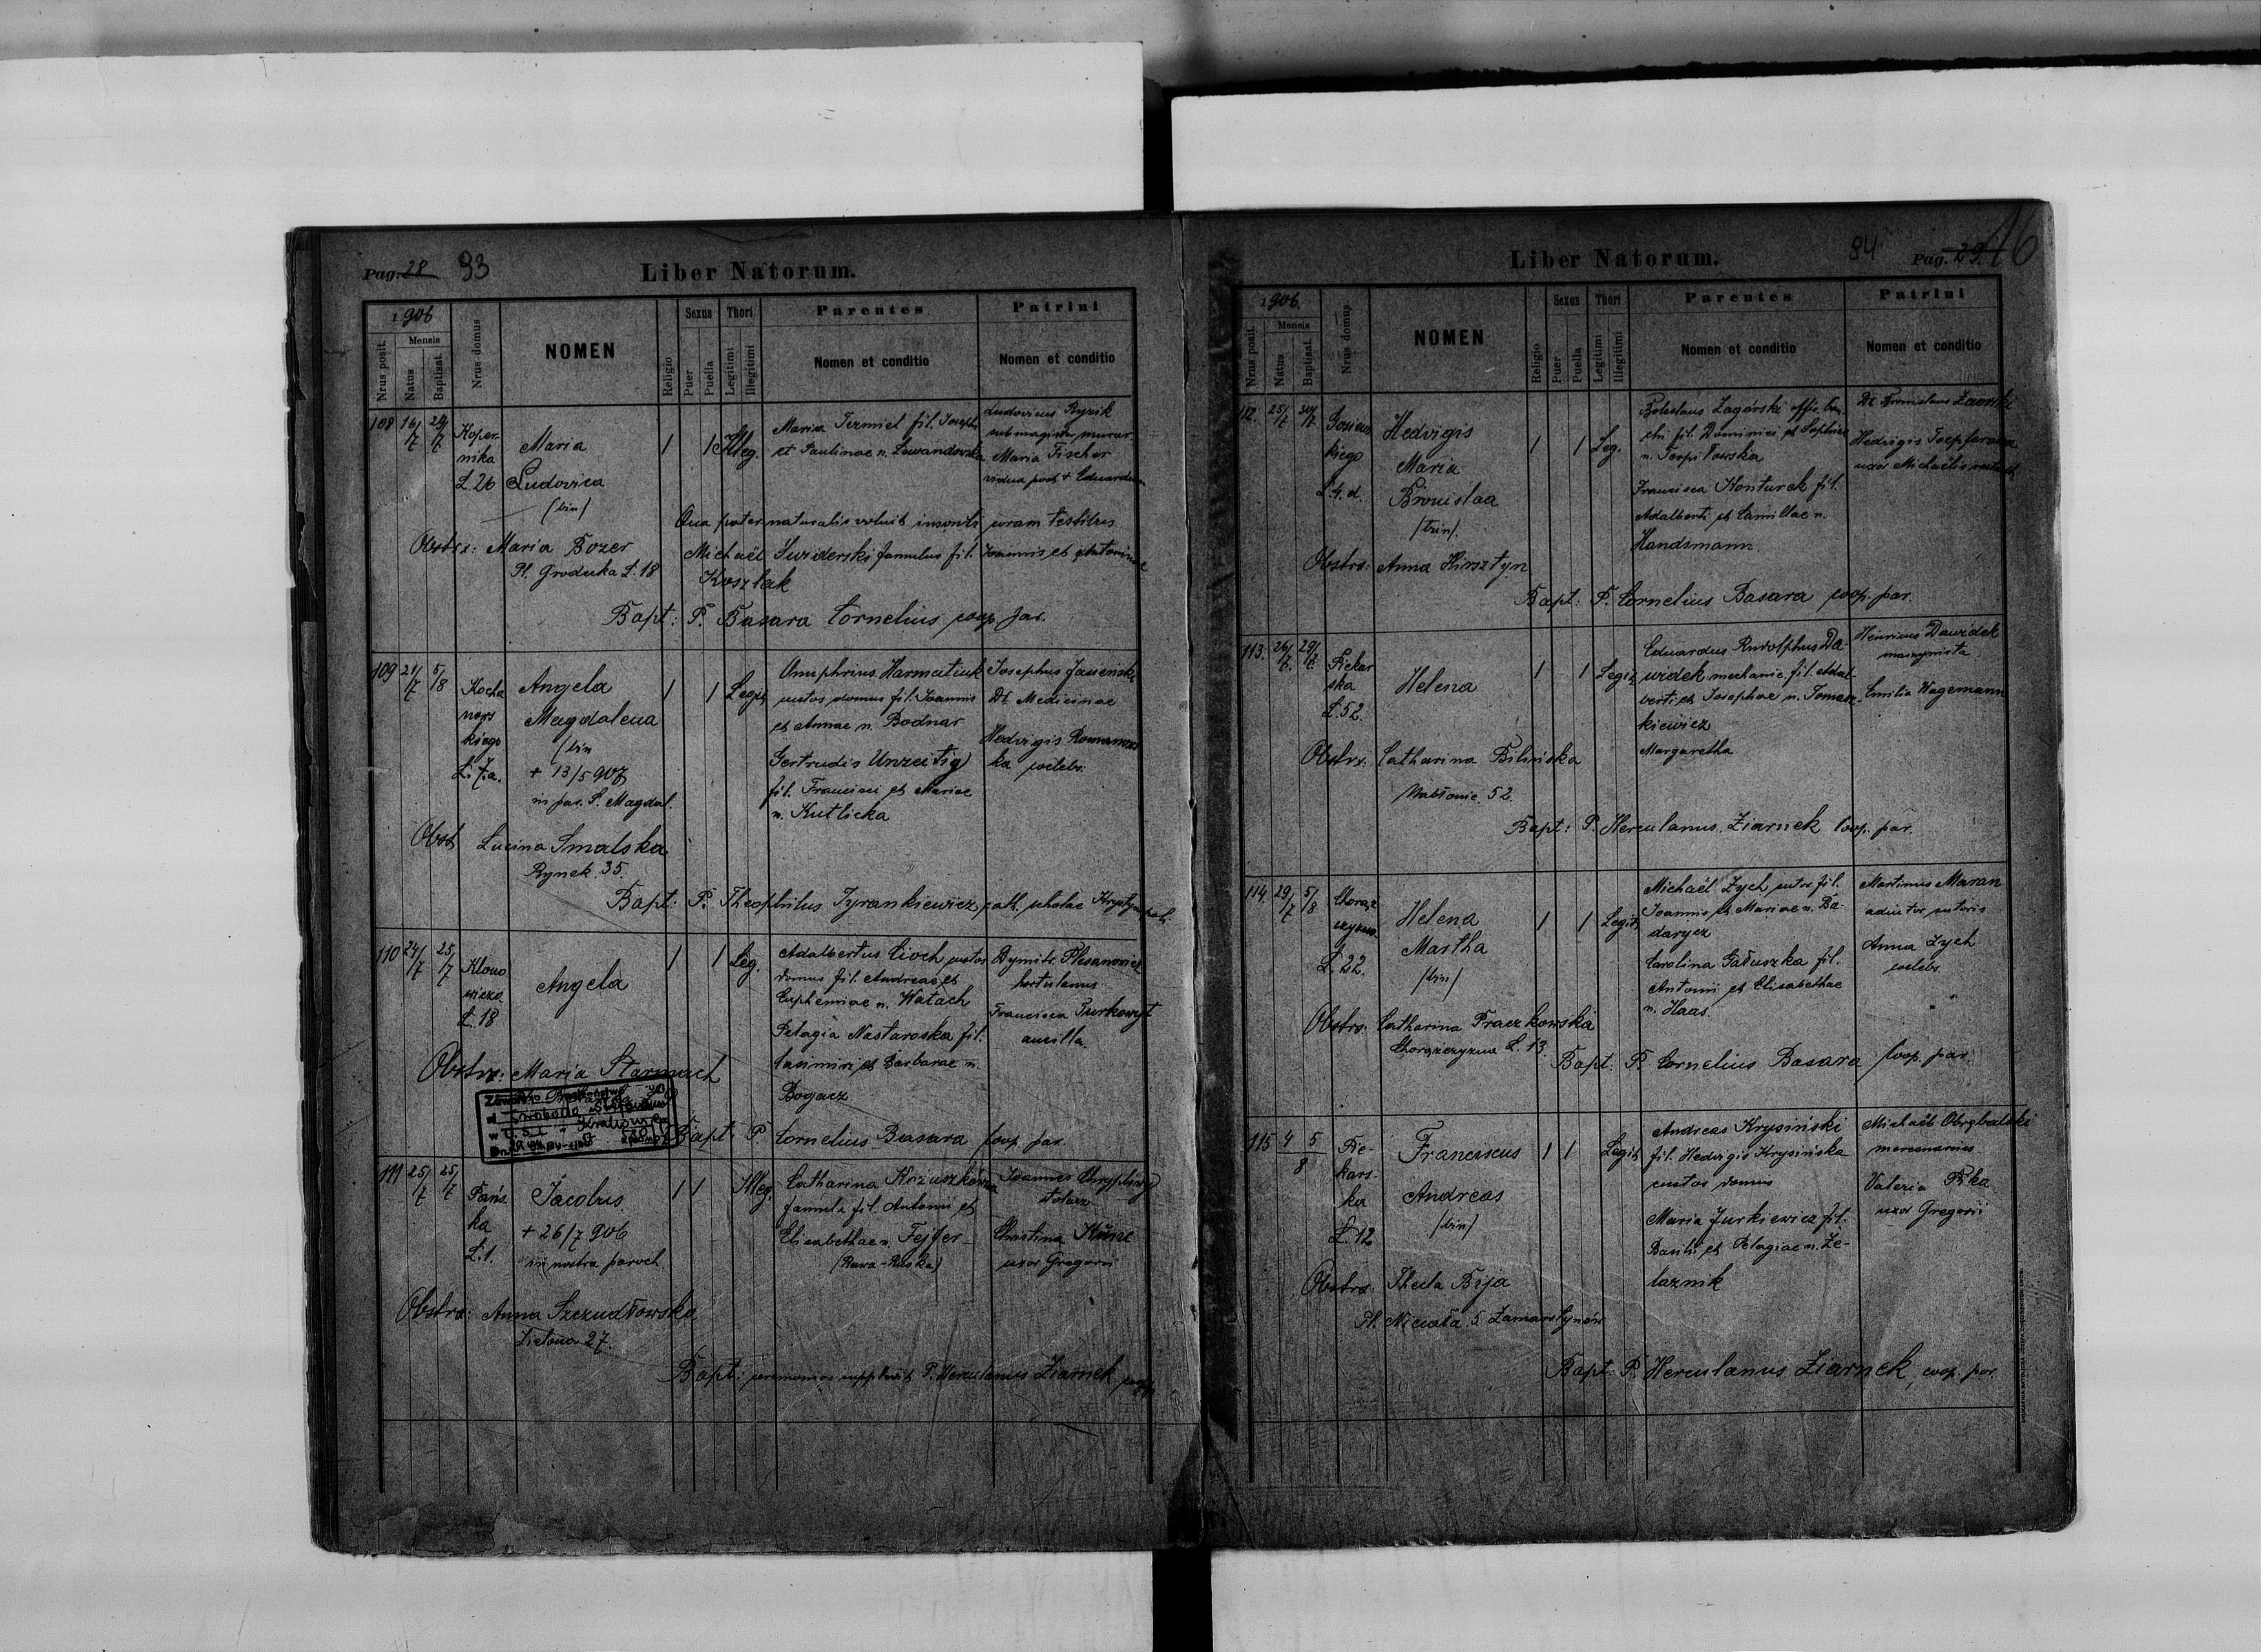 Pag. 28 93
Liber Natorum.
1906
Nrus posit.
Mensis
Natus
Baptisat.
Nrus domus
NOMEN
Religio
Sexus
Puer
Puella
Thori
Legitimi
Illegitimi
Parentes
Nomen et conditio
Patrini
Nomen et conditio
108 16/7 29/7
Koper-
nika
Ł. 26
Maria
Ludovica
/bin/
1 1 Illeg.
Maria Termiel fil. Joseph
et Paulinae n. Lewandowska
Ludovicus Ryzik
submagister murar.
Maria Fischer
vidua post + Eduardum
Qua pater naturalis voluit inscribi coram testibus
Michaël Świderski famulus fil. Joannis et Antoninae
Koszlak
Obstrx: Maria Bozer
Pl. Grodecka Ł. 18
Bapt: P. Basara Cornelius coop. par.
109 21/7 5/8
Kocha
nows
kiego
Ł. 7a.
Angela
Magdalena
/bin
+ 13/5 907
in par. S. Magdal.
1 1 Legit
Onuphrius Harmatiuk
custos domus fil. Joannis
et Annae n. Bodnar
Gertrudis Unzeitig
fil. Francisci et Mariae
n. Kutlicka
Josephus Jasieński
Dr. Medicinae
Hedvigis Romanows
ka coelebs.
Obst Lucina Smalska
Rynek 35.
Bapt: P. Theophilus Tyrankiewicz cath. scholae
110 24/7 25/7
Klono
wicza
Ł. 18
Angela
1 1 Leg.
Adalbertus Cioch custos
domus fil. Andreae et
Euphemiae n. Watach
Pelagia Nastaroska fil.
Casimiri et Barbarae n.
Bogacz
Dymitr. Plesanowicz
hortulanus
Francisca Turkowyt
ancilla.
Obstrx: Maria Starmach
Bapt: P. Cornelius Basara coop. par.
111 25/7 25/7
Pańs
ka
Ł. 1.
Jacobus
+ 26/7 906
in nostra paroch
1 1 Illeg.
Catharina Kożuszkówna
famula fil. Antonii et
Elisabethae n. Fejfer
(Rawa-Ruska)
Joannes
stolarz
Christina
uxor Gregorii
Obstrx: Anna Szczudłowska
Zielona 27.
Bapt: ceremonias supplevit P. Herculanus Ziarnek coop.
84 Pag. 29. 16
Liber Natorum.
1906.
Nrus posit.
Mensis
Natus
Baptisat.
Nrus domus
NOMEN
Religio
Sexus
Puer
Puella
Thori
Legitimi
Illegitimi
Parentes
Nomen et conditio
Patrini
Nomen et conditio
112. 25/7 30/7
Gosiews
kiego
Ł. 4. d.
Hedvigis
Maria
Bronislaa
/trin/.
1 1 Leg.
Boleslaus Zagórski offic. ban-
chi fil. Dominici et Sophiae
n. Terpiłowska
Francisca Konturek fil.
Adalberti et Camillae n.
Handsmann.
Dr. Bronislaus Zaorski
Hedvigis Toepferowa
uxor Michaëlis
Obstrx: Anna Hirsztyn
Bapt: P. Cornelius Basara coop. par.
113. 26/7. 29/7.
Piekar
ska
Ł. 52.
Helena
1 1 Legit.
Eduardus Rudolphus Da-
widek mechanic. fil. Adal-
berti et Josephae n. Tomasz-
kiewicz
Margaretha
Henricus Dawidek
maszynista
Emilia Wagemann
Obstrx: Catharina Bilińska
Jabłonic. 52.
Bapt: P. Herculanus Ziarnek coop. par.
114. 29/7 5/8
Chorąz
czyzna
Ł. 22.
Helena
Martha
/bin/
1 1 Legit
Michaël Zych sutor fil.
Joannis et Mariae n. Ba-
darycz
Carolina Gałuszka fil.
Antonii et Elisabethae
n. Haas.
Martinus Maran
adiutor sutoris
Anna Zych
coelebs.
Obstrx: Catharina Fraczkowska
Chorązczyzna Ł. 13.
Bapt: P. Cornelius Basara coop. par.
115 4 5/8
Pie-
kars-
ka
Ł. 12
Franciscus
Andreas
/bin/
1 1 Legit
Andreas Krysiński
fil. Hedvigis Krysińska
custos domus
Maria Jurkiewicz fil.
Basilii et Pelagiae n. Że-
laznik
Michaël
mercenarius
Valeria Pika
uxor Gregorii
Obstrx. Thecla Bija
Pl. Nicała 5. Zamarstynów
Bapt: P. Herculanus Ziarnek, coop. par